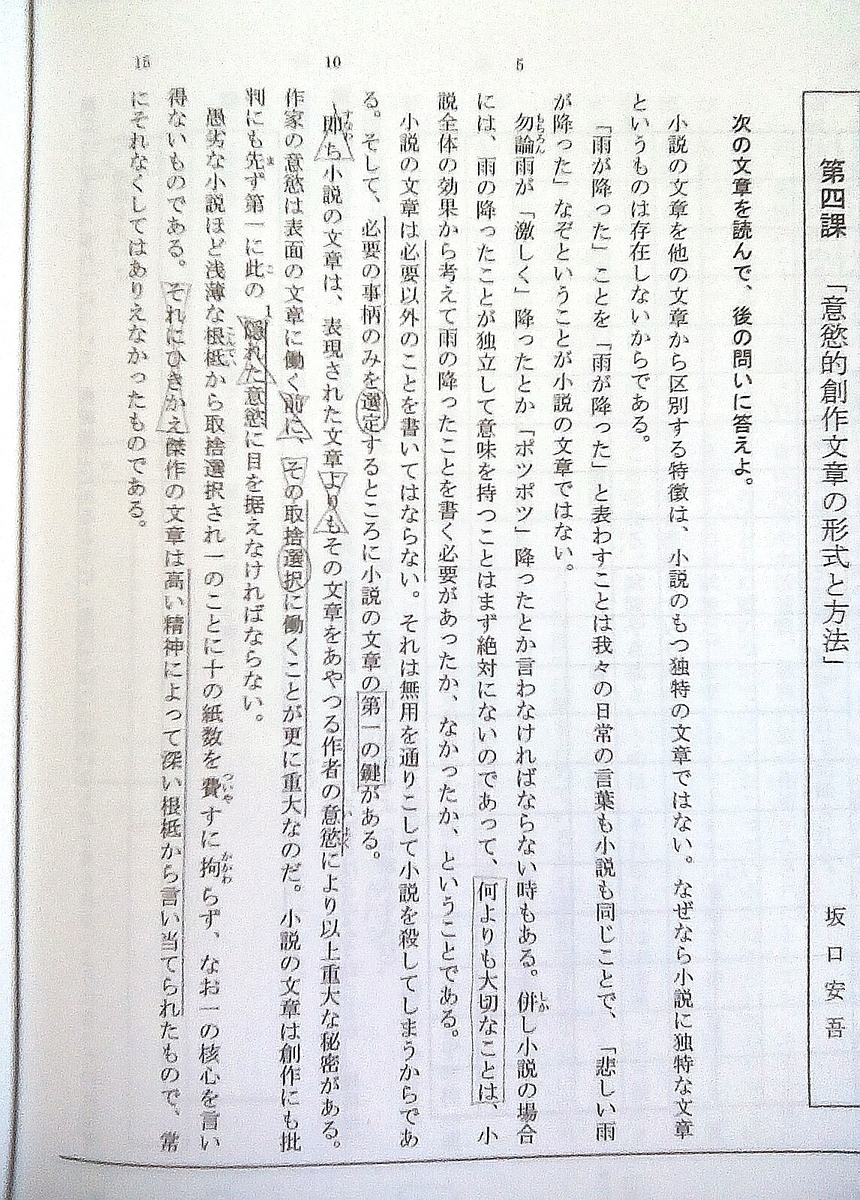 第四課　「意慾的創作文章の形式と方法」　坂口安吾
次の文章を読んで、後の問いに答えよ。
小説の文章を他の文章から区別する特徴は、小説のもつ独特の文章ではない。なぜなら小説に独特な文章
というものは存在しないからである。
「雨が降った」ことを「雨が降った」と表わすことは我々の日常の言葉も小説も同じことで、「悲しい雨
が降った」なぞということが小説の文章ではない。
5
勿論雨が「激しく」降ったとか「ポツポツ」降ったとか言わなければならない時もある。併し小説の場合
もちろん
しか
には、雨の降ったことが独立して意味を持つことはまず絶対にないのであって、何よりも大切なことは、小
説全体の効果から考えて雨の降ったことを書く必要があったか、なかったか、ということである。
小説の文章は必要以外のことを書いてはならない。それは無用を通りこして小説を殺してしまうからであ
る。そして、必要の事柄のみを選定するところに小説の文章の第一の鍵がある。
10
即ち小説の文章は、表現された文章よりもその文章をあやつる作者の意慾により以上重大な秘密がある。
すなわ
いよく
作家の意慾は表面の文章に働く前に、その取捨選択に働くことが更に重大なのだ。小説の文章は創作にも批
判にも先ず第一に此の隠れた意慾に目を据えなければならない。
ま
こ
1
愚劣な小説ほど浅薄な根柢から取捨選択され一のことに十の紙数を費すに拘らず、なお一の核心を言い
こんてい
ついや
かかわ
得ないものである。それにひきかえ傑作の文章は高い精神によって深い根柢から言い当てられたもので、常
15
にそれなくしてはありえなかったものである。